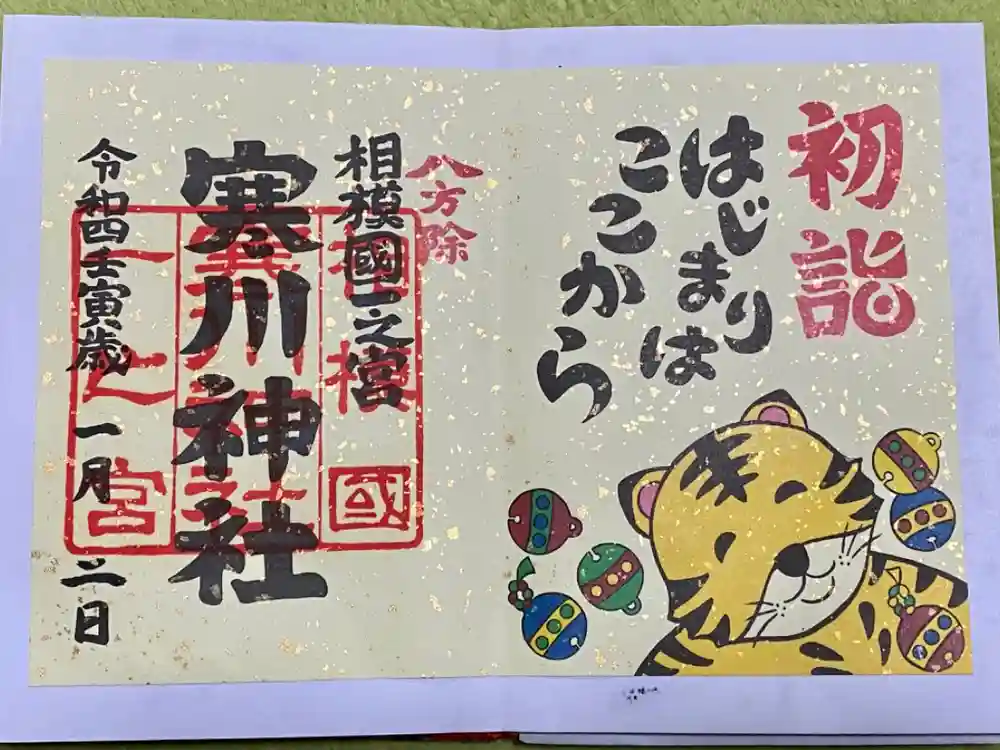 初詣
はじまりは
ここから
八方除
相模國一之宮
寒川神社
令和四壬寅歳 一月 二日
相模國
一之宮